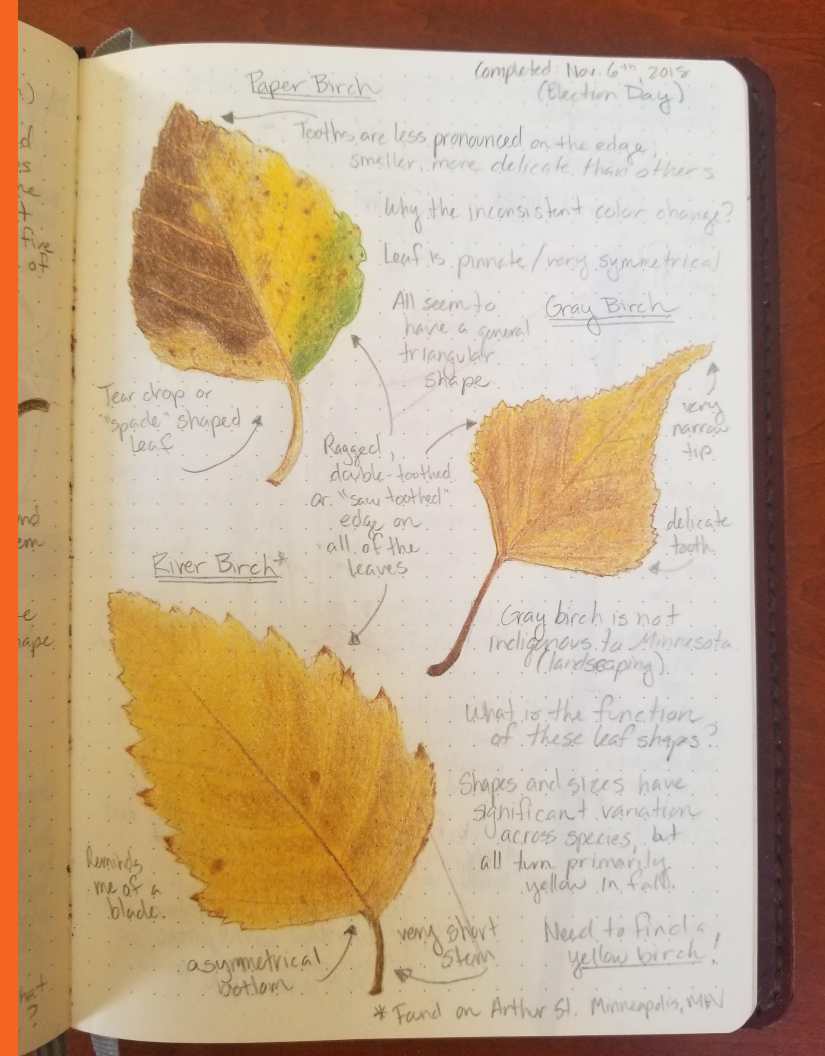 Completed: Nov. 6th, 2018
(Election Day)
Paper Birch
Tooths are less pronounced on the edge,
smaller, more delicate than others
Why the inconsistent color change?
Leaf is pinnate/very symmetrical
All seem to
have a general
triangular
shape
Gray Birch
Tear drop or
"spade" shaped
leaf
very
narrow
tip
Ragged,
double-toothed
or "saw toothed"
edge on
all of the
leaves
delicate
tooth
River Birch*
Gray birch is not
indigenous to Minnesota
(landscaping)
What is the function
of these leaf shaps?
Shapes and sizes have
significant variation
across species, but
all turn primarily
yellow in fall.
Reminds
me of a
blade.
very short
stem
Need to find a
yellow birch!
asymmetrical
bottom
* Found on Arthur St. Minneapolis, MN
five
of